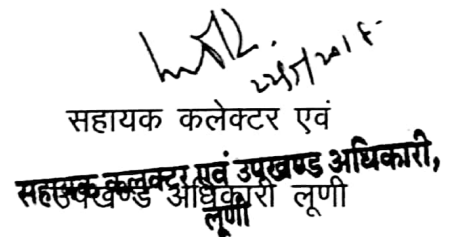 सहायक कलेक्टर एवं
सहायक कलक्टर एवं उपखण्ड अधिकारी,
उपखण्ड अधिकारी लूणी
लूणी